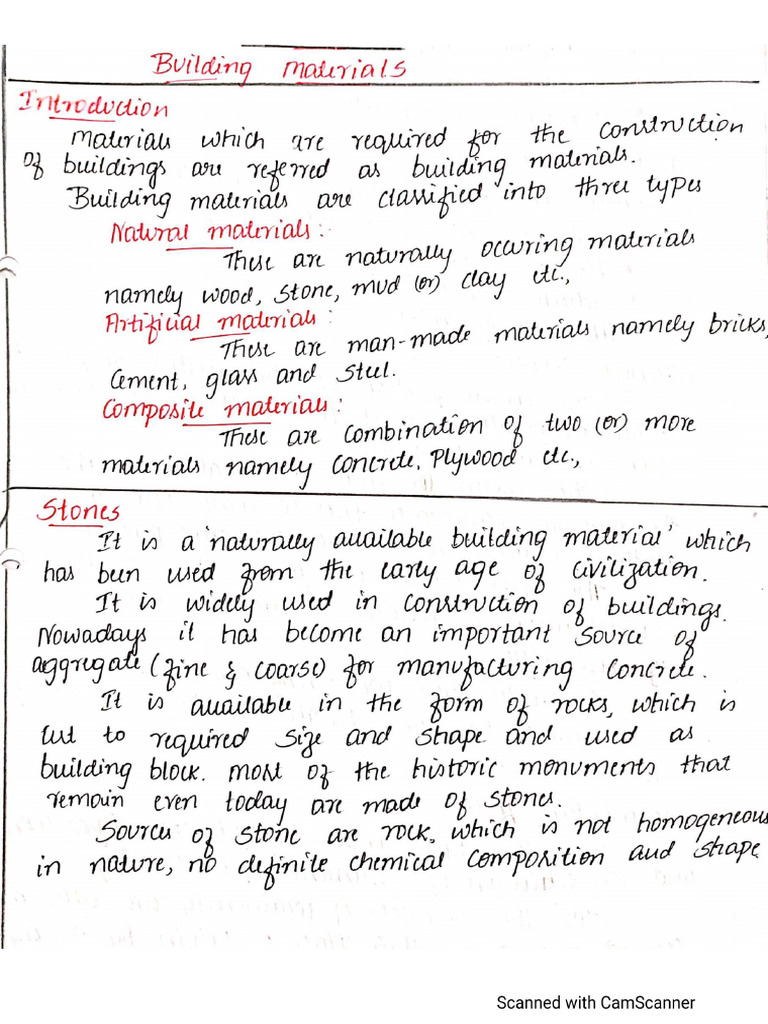 Building Materials
Introduction
Materials which are required for the construction
of buildings are referred as building materials.
Building materials are classified into three types
Natural materials:
These are naturally occuring materials
namely wood, stone, mud (or) clay etc.,
Artificial materials:
These are man-made materials namely bricks,
Cement, glass and Steel.
Composite materials:
These are combination of two (or) more
materials namely concrete, Plywood etc.,
Stones
It is a 'naturally available building material' which
has been used from the early age of civilization.
It is widely used in construction of buildings.
Nowadays it has become an important source of
aggregate (fine & coarse) for manufacturing concrete.
It is available in the form of rocks, which is
cut to required size and shape and used as
building block. Most of the historic monuments that
remain even today are made of stones.
Sources of stone are rock, which is not homogeneous
in nature, no definite chemical composition and shape
Scanned with CamScanner